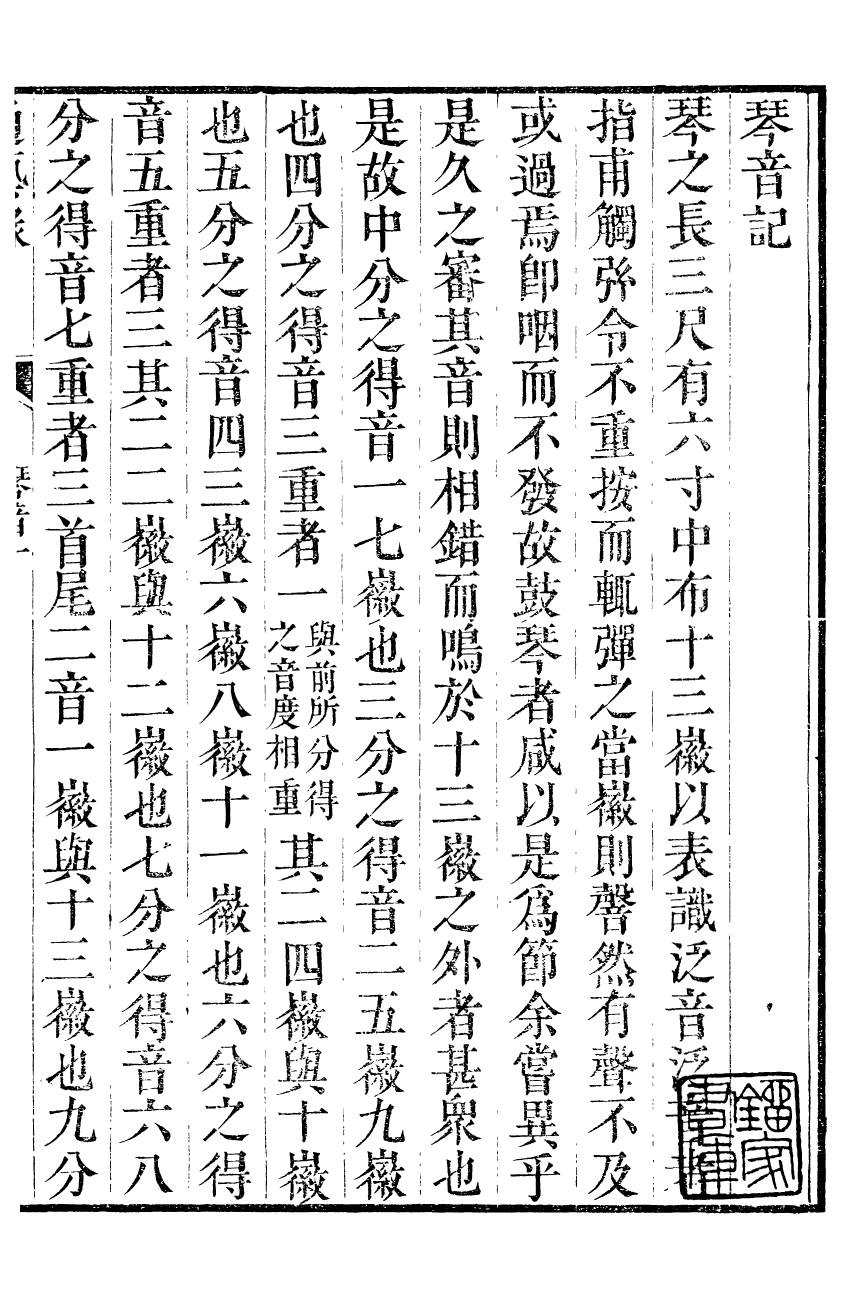 琴音記
琴之長三尺有六寸中布十三徽以表識泛音泛音者
指甫觸弦令不重按而輒彈之當徽則謦然有聲不及
或過焉卽咽而不發故鼓琴者咸以是爲節余嘗異乎
是久之審其音則相錯而鳴於十三徽之外者甚衆也
是故中分之得音一七徽也三分之得音二五徽九徽
也四分之得音三重者一與前所分得之音度相重其二四徽與十徽
也五分之得音四三徽六徽八徽十一徽也六分之得
音五重者三其二二徽與十二徽也七分之得音六八
分之得音七重者三首尾二音一徽與十三徽也九分
通藝錄 琴音一